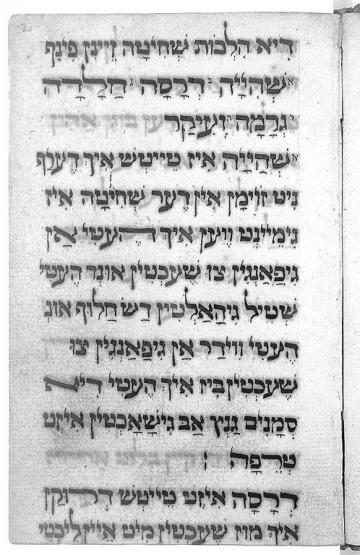 דיא הלכות שחיטה זיינן פינף
שְׁהִיָיה דְרָסָה חַלָדָה
גְרָמָה וְעִיקַר
שְׁהִיָיה איז טייטש איך דערף
ניט זוימן אין דער שחיטה איז
גימיינט ווען איך העטי אן
גיפאנגין צו שעכטין אונד העטי
שטיל גיהאלטין דש חלוף אונ
העטי ווידר אן גיפאנגין צו
שעכטין ביז איך העטי דיא
סמנים גנץ אב גישאכטין איזט
טריפה
דרסה איזט טייטש דרוקן
איך מוז שעכטין מיט אייןליכטי